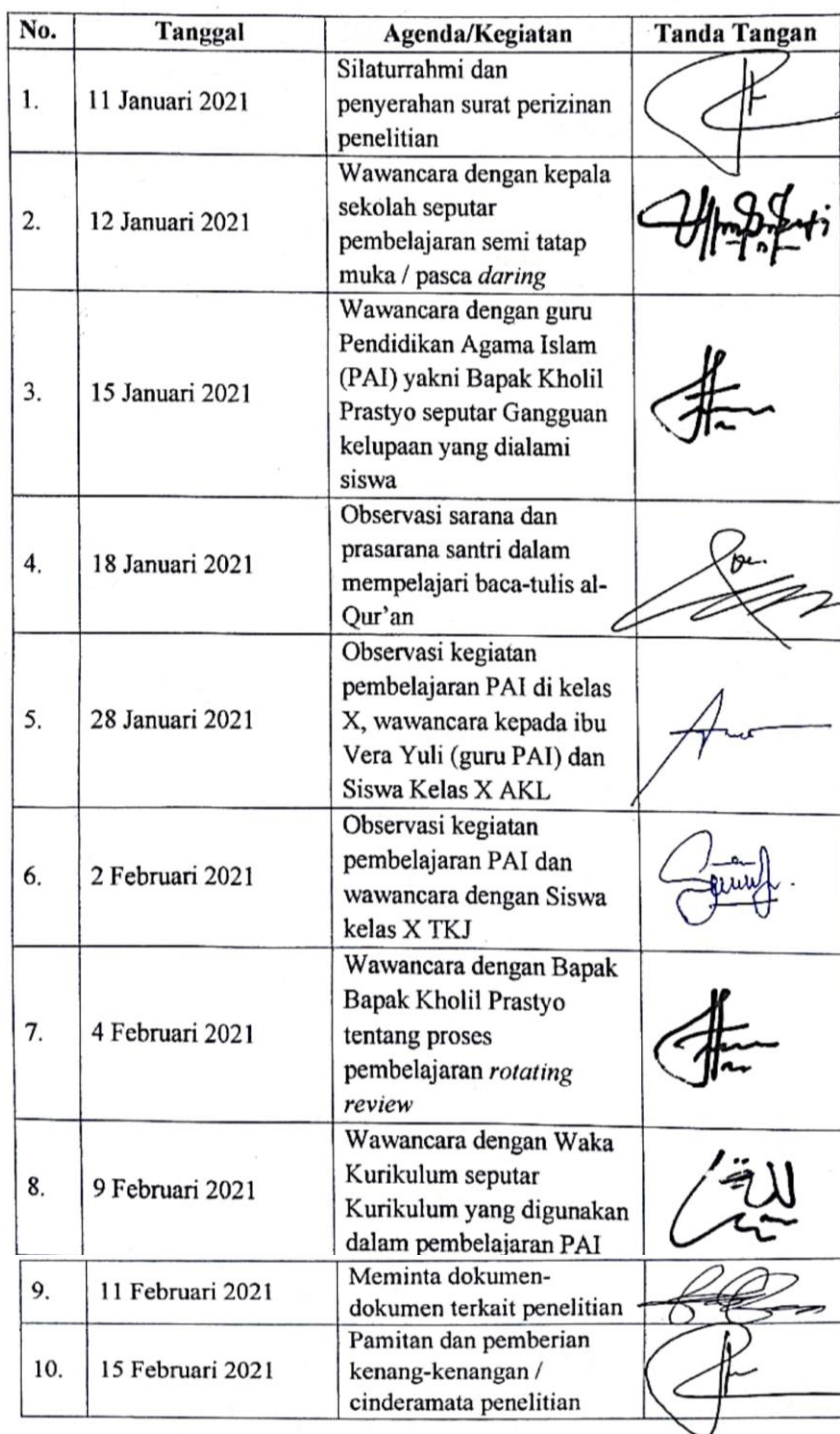 No. Tanggal Agenda/Kegiatan Tanda Tangan
1. 11 Januari 2021 Silaturrahmi dan
penyerahan surat perizinan
penelitian
2. 12 Januari 2021 Wawancara dengan kepala
sekolah seputar
pembelajaran semi tatap
muka / pasca daring
3. 15 Januari 2021 Wawancara dengan guru
Pendidikan Agama Islam
(PAI) yakni Bapak Kholil
Prastyo seputar Gangguan
kelupaan yang dialami
siswa
4. 18 Januari 2021 Observasi sarana dan
prasarana santri dalam
mempelajari baca-tulis al-
Qur'an
5. 28 Januari 2021 Observasi kegiatan
pembelajaran PAI di kelas
X, wawancara kepada ibu
Vera Yuli (guru PAI) dan
Siswa Kelas X AKL
6. 2 Februari 2021 Observasi kegiatan
pembelajaran PAI dan
wawancara dengan Siswa
kelas X TKJ
7. 4 Februari 2021 Wawancara dengan Bapak
Bapak Kholil Prastyo
tentang proses
pembelajaran rotating
review
8. 9 Februari 2021 Wawancara dengan Waka
Kurikulum seputar
Kurikulum yang digunakan
dalam pembelajaran PAI
9. 11 Februari 2021 Meminta dokumen-
dokumen terkait penelitian
10. 15 Februari 2021 Pamitan dan pemberian
kenang-kenangan /
cinderamata penelitian